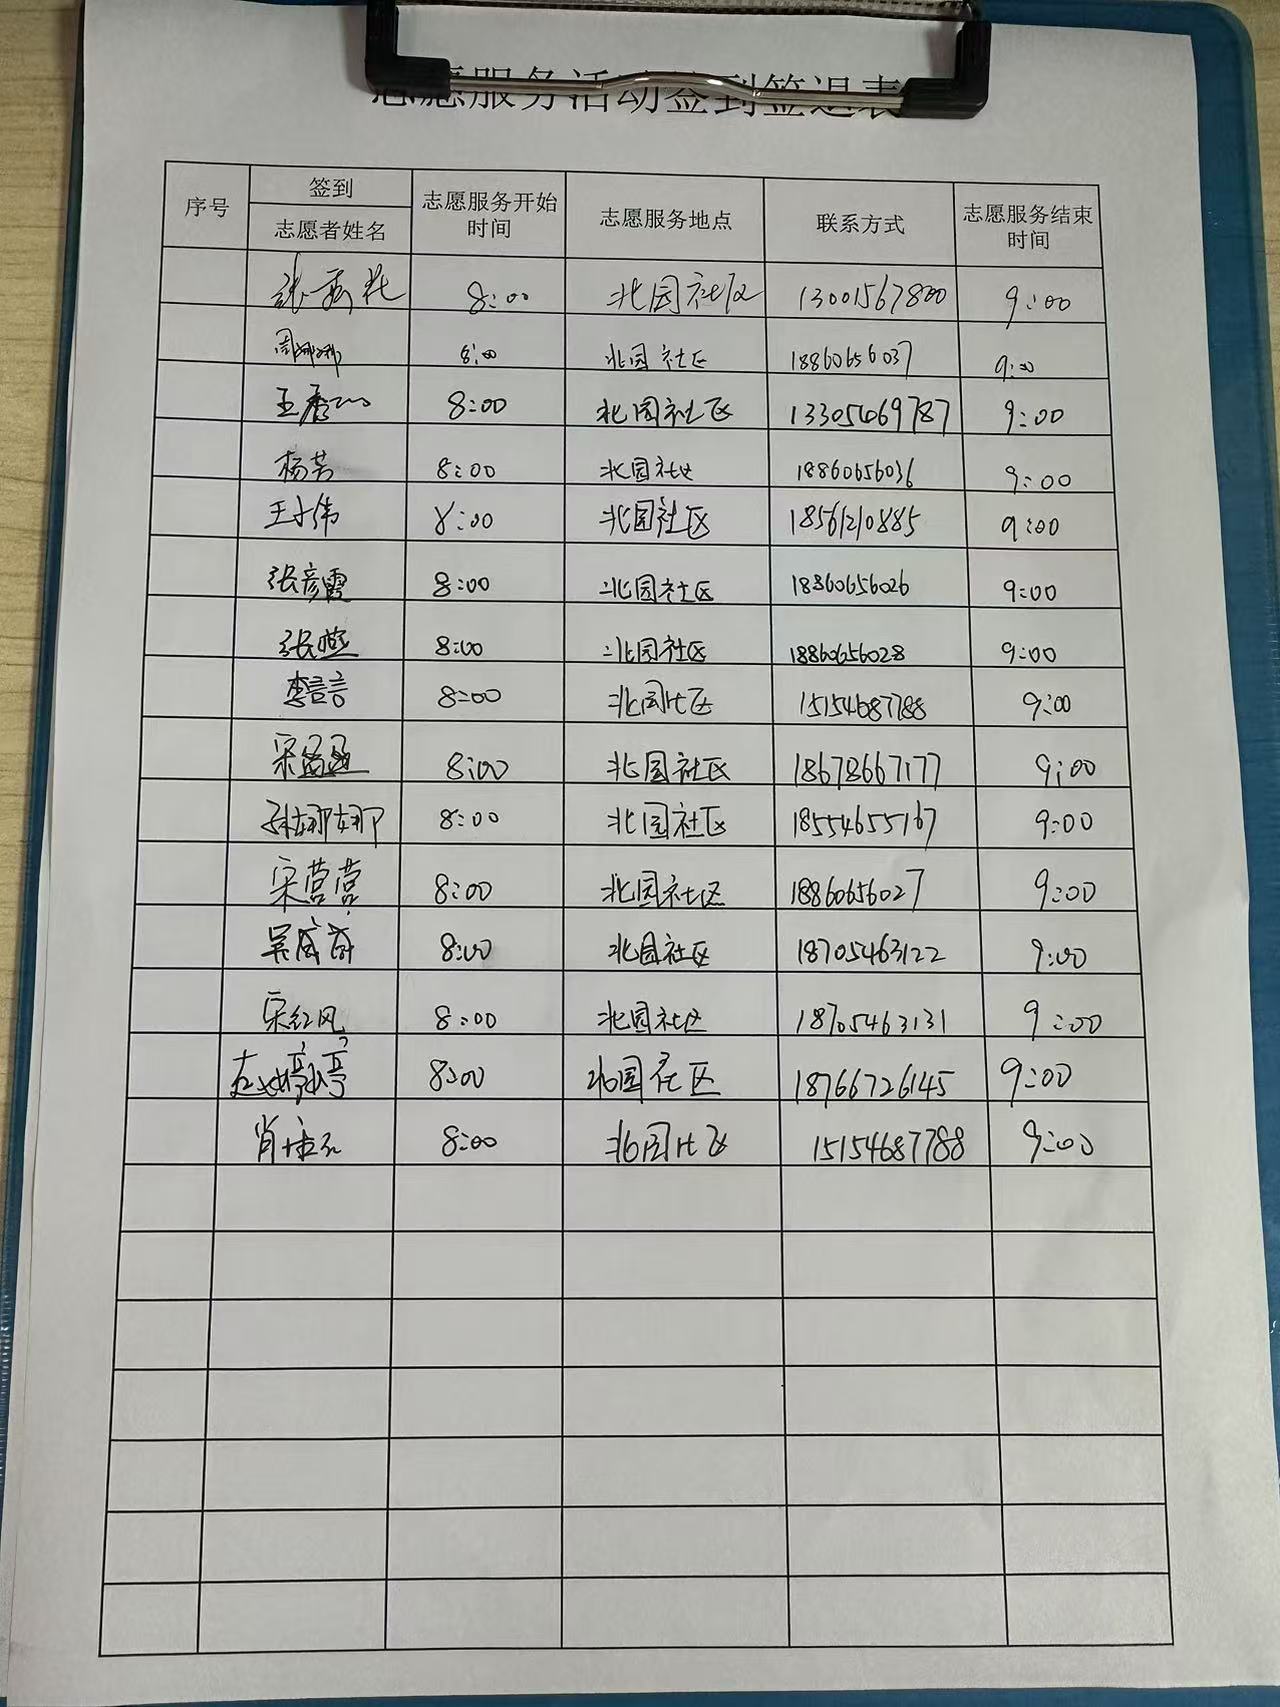 志愿服务活动签到签退表
序号 签到 志愿者姓名 志愿服务开始时间 志愿服务地点 联系方式 志愿服务结束时间
张 8:00 北园社区 13001567800 9:00
周娜娜 8:00 北园社区 18860656037 9:00
王 8:00 北园社区 13305469787 9:00
杨芳 8:00 北园社区 18860656036 9:00
王小伟 8:00 北园社区 18561210885 9:00
张彦霞 8:00 北园社区 18860656026 9:00
张燕 8:00 北园社区 18860656028 9:00
李言言 8:00 北园社区 15154687788 9:00
宋盈盈 8:00 北园社区 18678667177 9:00
孙娜娜 8:00 北园社区 18554655167 9:00
宋营营 8:00 北园社区 18860656027 9:00
吴 8:00 北园社区 18705463122 9:00
宋红风 8:00 北园社区 18705463131 9:00
婷婷 8:00 北园社区 18766726145 9:00
肖 8:00 北园社区 15154687788 9:00